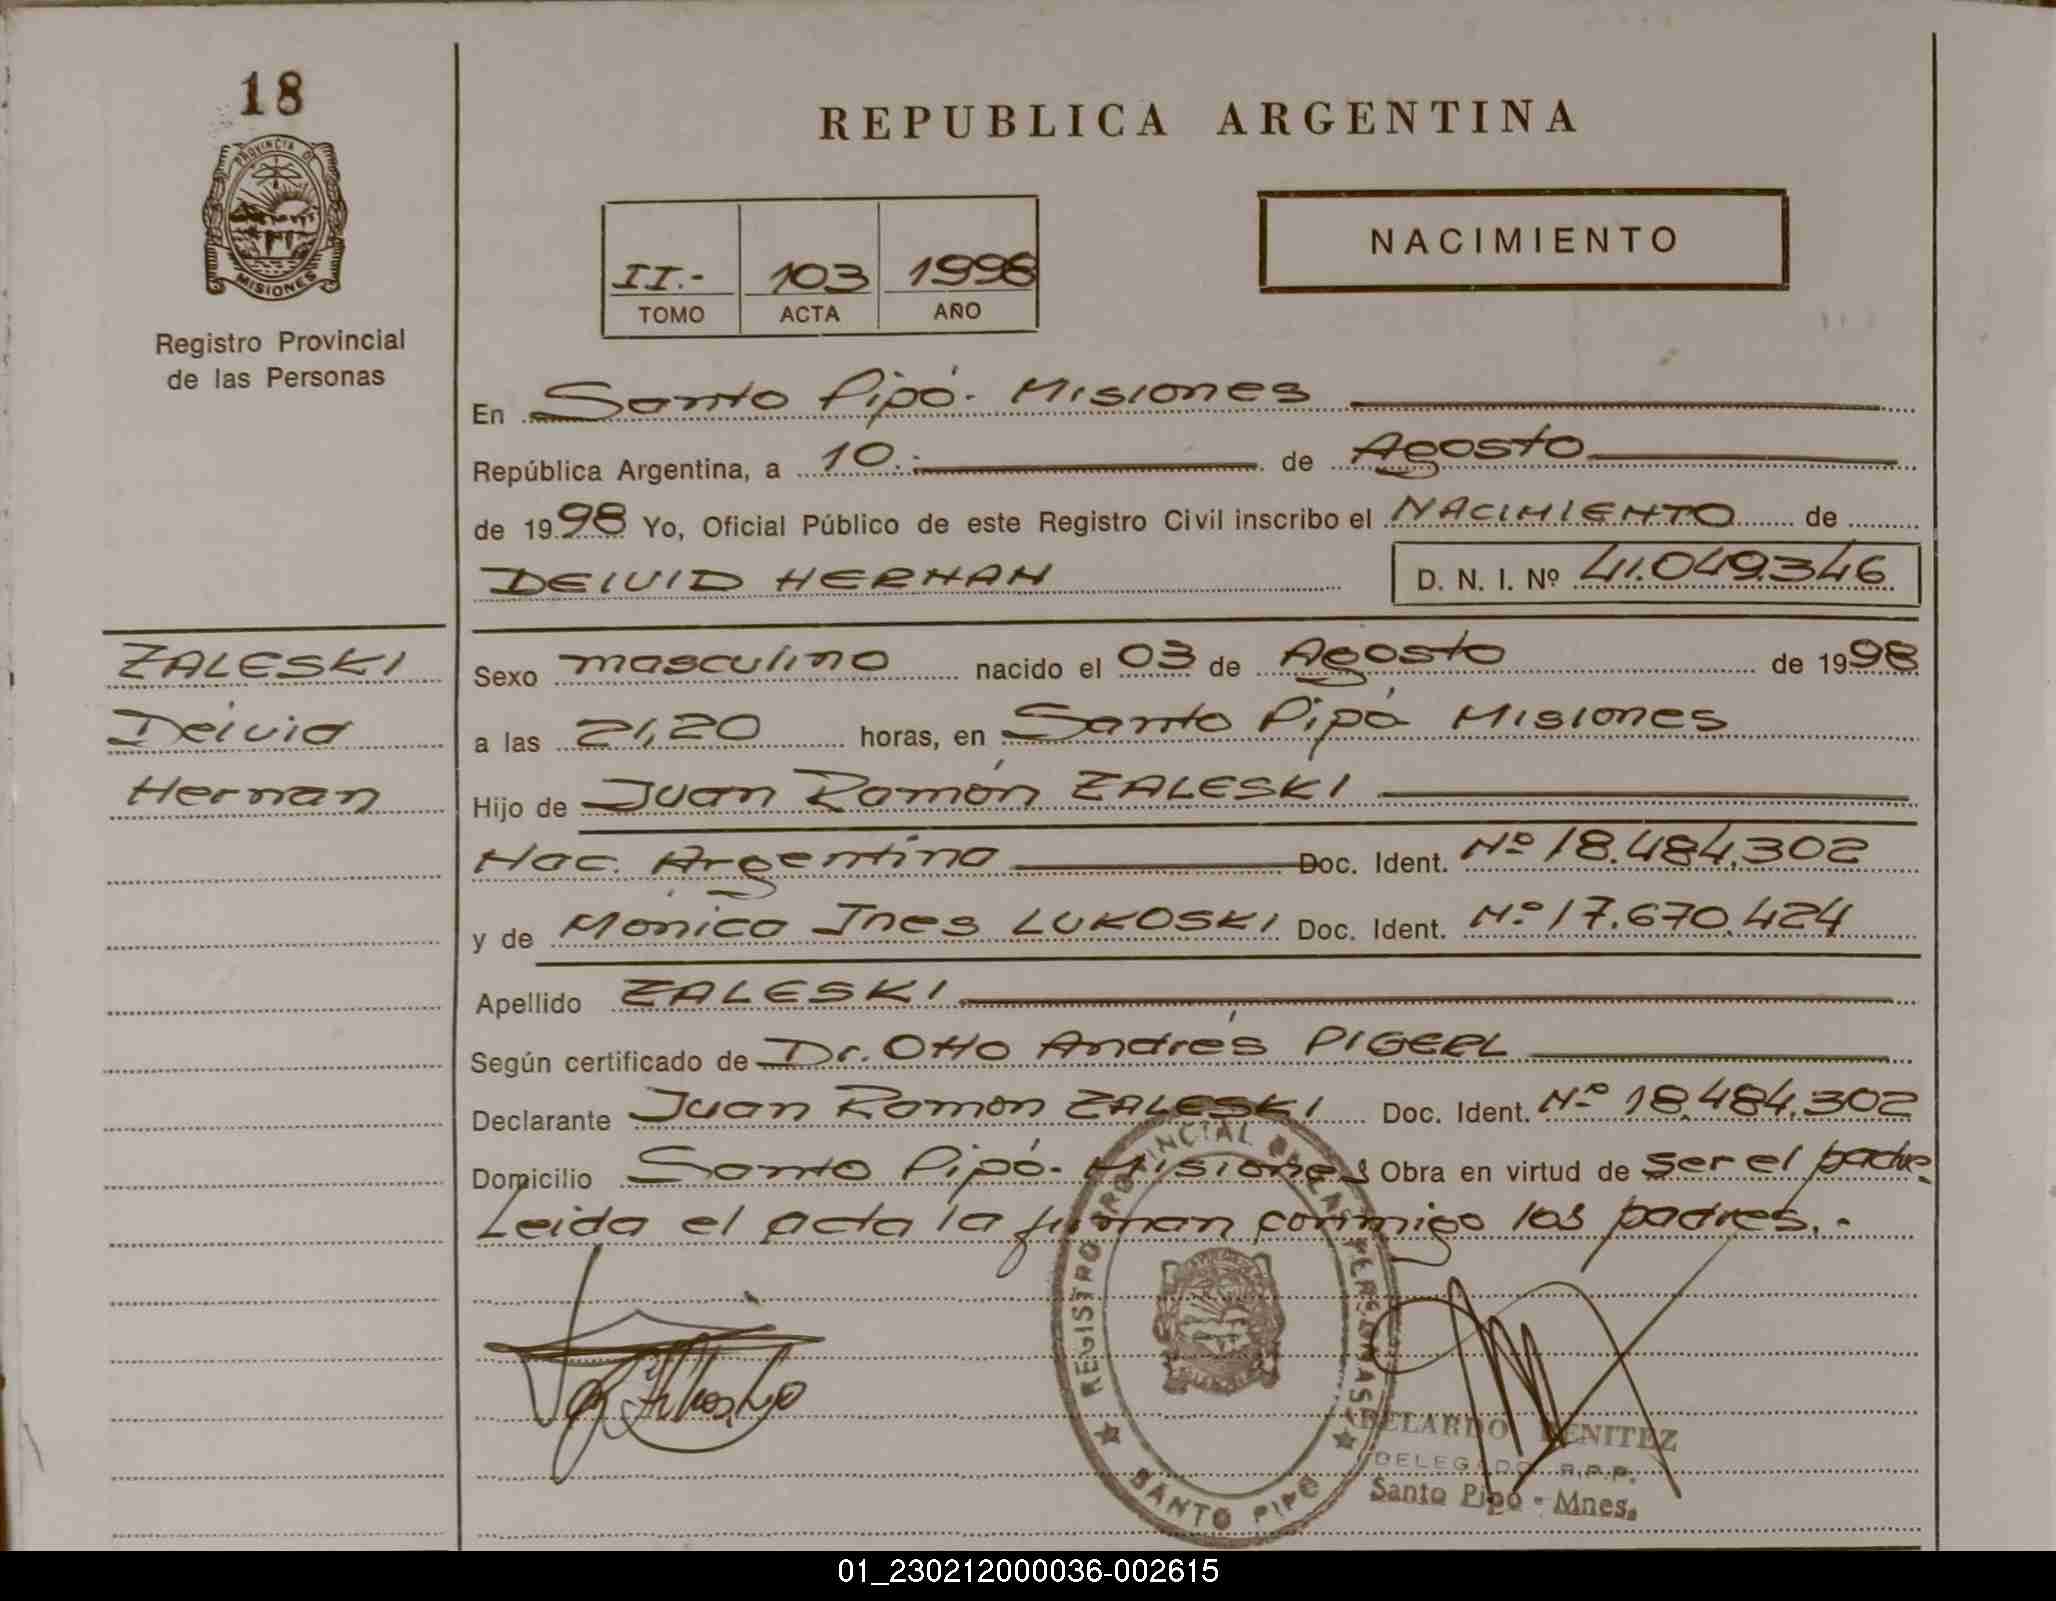 18
PROVINCIA DE
MISIONES
Registro Provincial
de las Personas
REPUBLICA ARGENTINA
II.- 103 1998
TOMO ACTA AÑO
NACIMIENTO
En Santo Pipó. Misiones
República Argentina, a 10. de Agosto
de 1998 Yo, Oficial Público de este Registro Civil inscribo el NACIMIENTO de
DEIVID HERNAN D. N. I. Nº 41.049.346
ZALESKI
Deivid
Hernan
Sexo masculino nacido el 03 de Agosto de 1998
a las 21,20 horas, en Santo Pipó Misiones
Hijo de Juan Ramón ZALESKI
Nac. Argentina Doc. Ident. Nº 18.484.302
y de Mónica Ines LUKOSKI Doc. Ident. Nº 17.670.424
Apellido ZALESKI
Según certificado de Dr. Otto Andrés PIGERL
Declarante Juan Ramon ZALESKI Doc. Ident. Nº 18.484.302
Domicilio Santo Pipó. Misiones Obra en virtud de ser el padre.
Leida el acta la firman conmigo los padres.-
REGISTRO PROVINCIAL DE LAS PERSONAS
SANTO PIPO
ABELARDO BENITEZ
DELEGADO R.P.P.
Santo Pipó - Mnes.
01_230212000036-002615